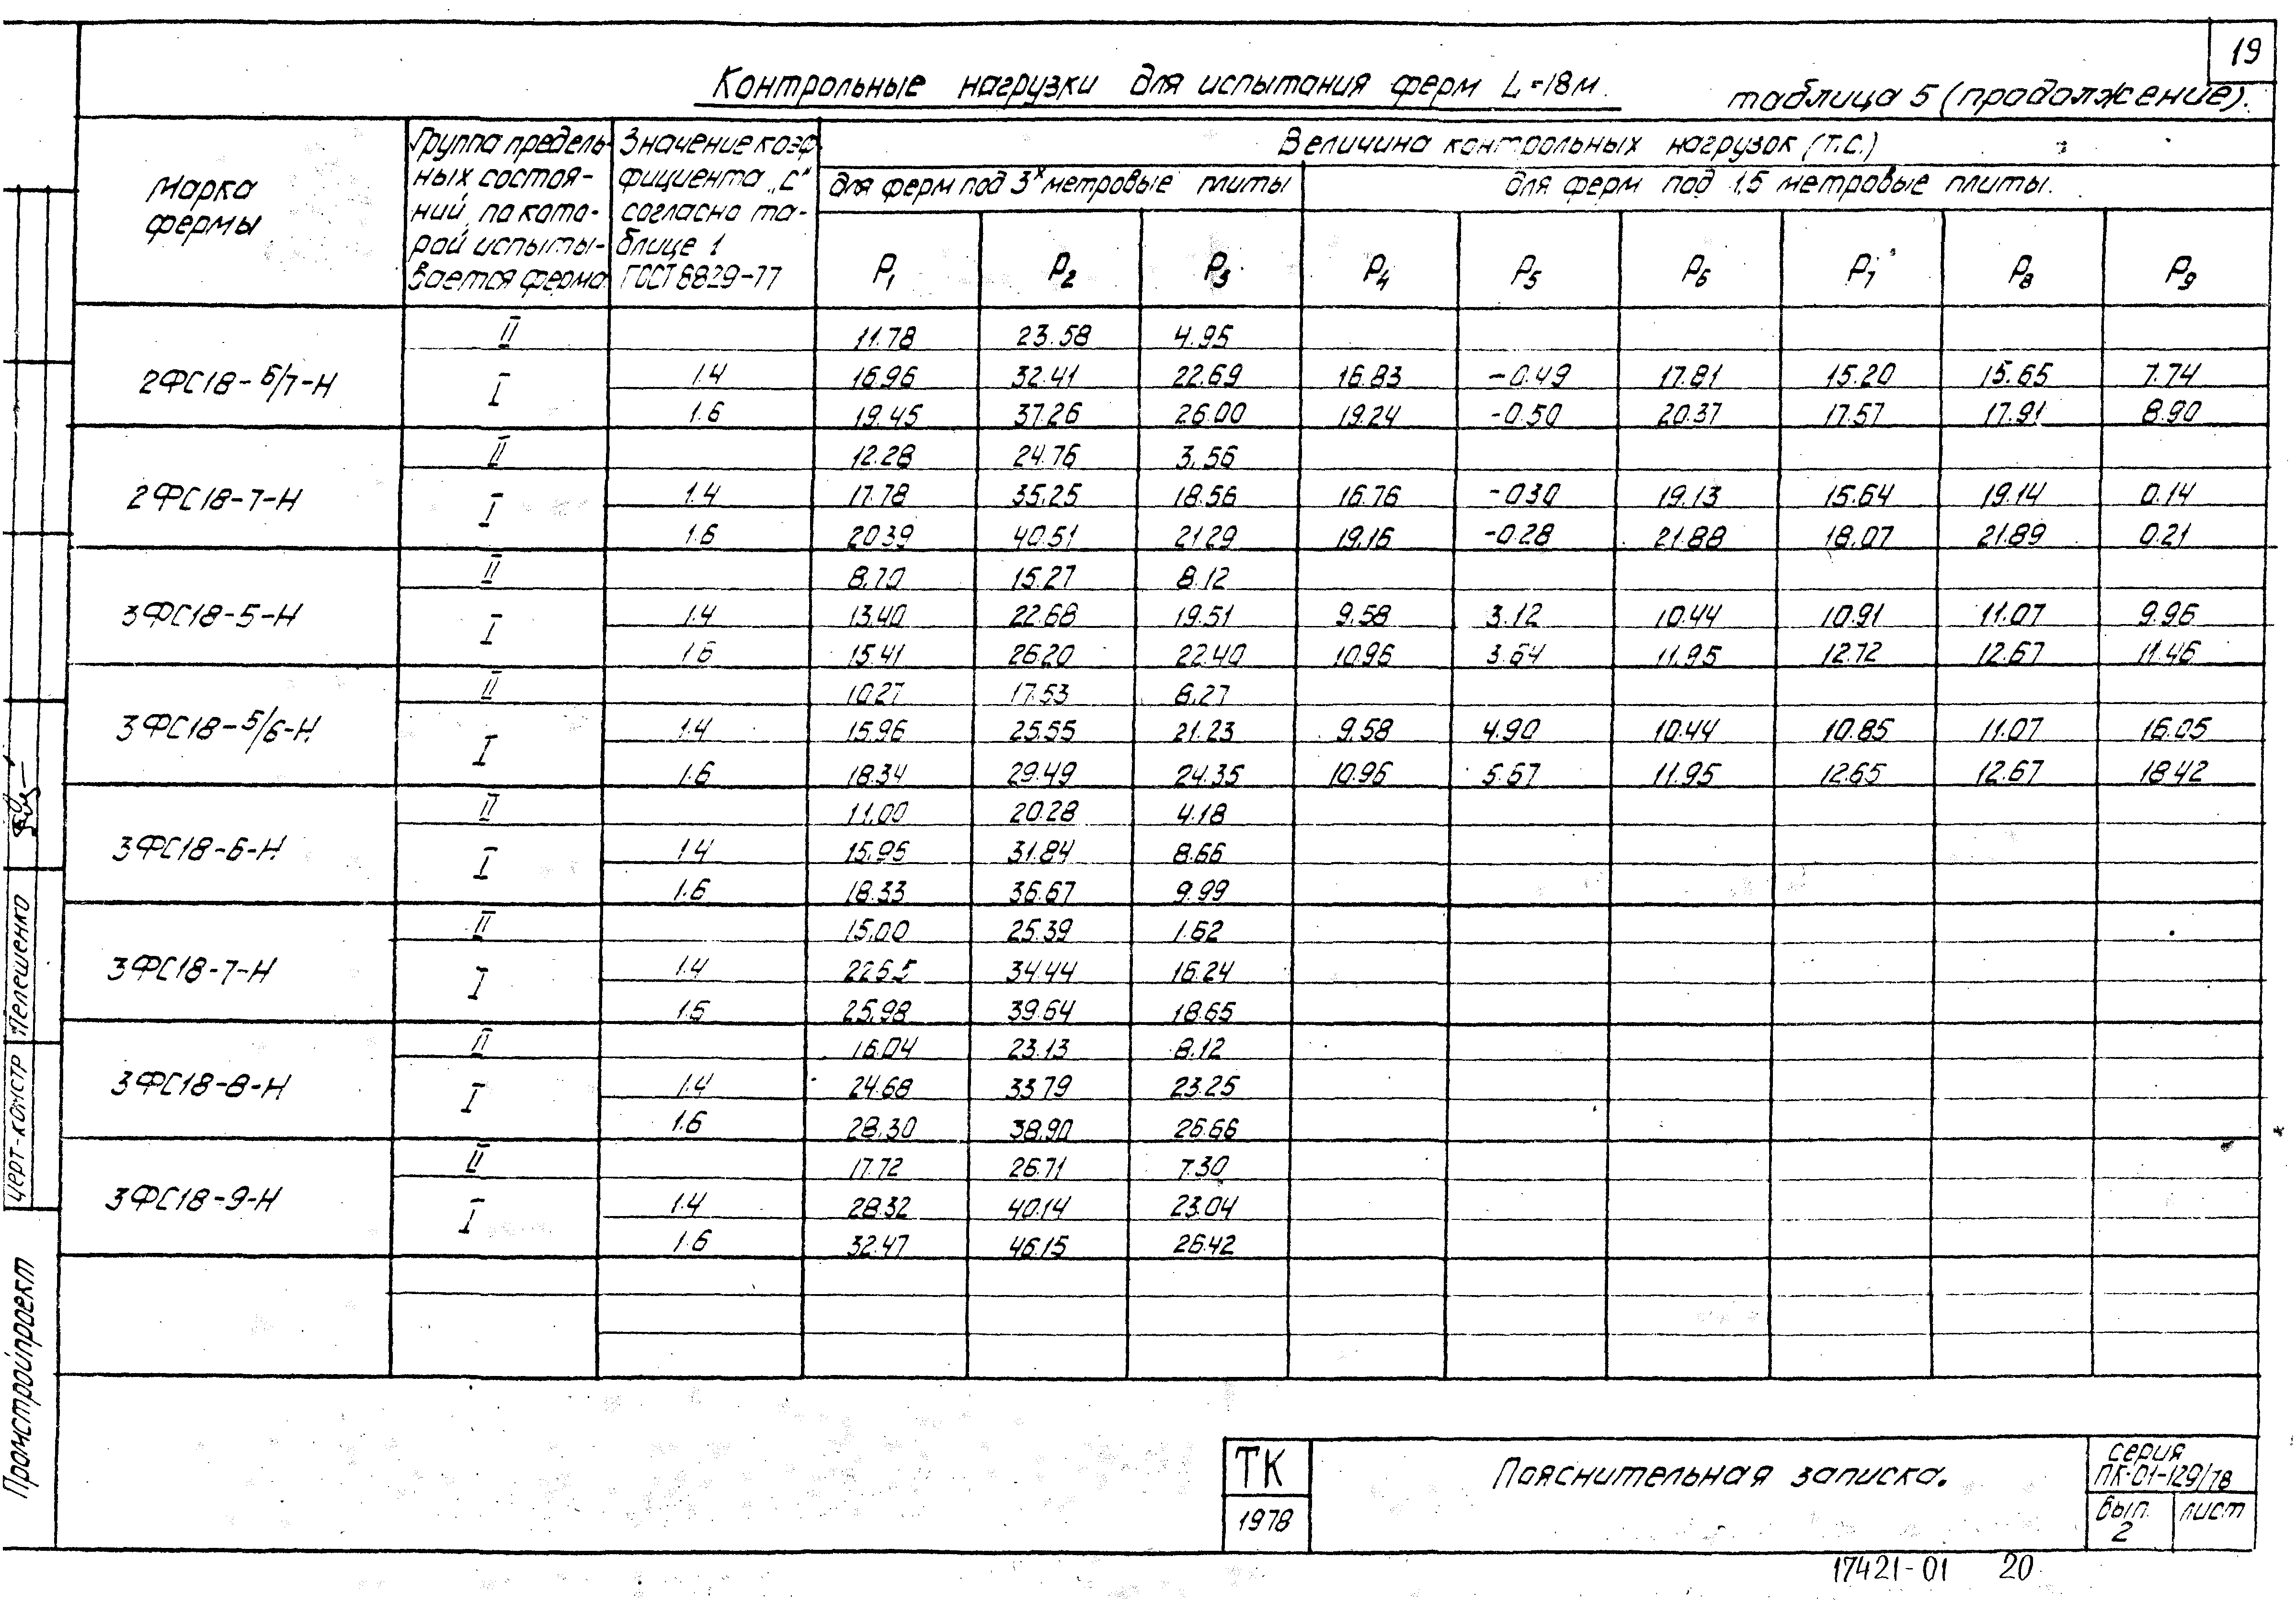 19
Контрольные нагрузки для испытания ферм L=18м.
таблица 5 (продолжение).
Марка фермы
Группа предель-
ных состоя-
ний, по кото-
рой испыты-
вается ферма
Значение коэф-
фициента "С"
согласно та-
блице 1
ГОСТ 8829-77
Величина контрольных нагрузок (т.с.)
для ферм под 3х метровые плиты
для ферм под 1,5 метровые плиты.
P1 P2 P3 P4 P5 P6 P7 P8 P9
2ФС18-6/7-Н
II 11.78 23.58 4.95
I 1.4 16.96 32.41 22.69 16.83 -0.49 17.81 15.20 15.65 7.74
1.6 19.45 37.26 26.00 19.24 -0.50 20.37 17.57 17.91 8.90
2ФС18-7-Н
II 12.28 24.76 3.56
I 1.4 17.78 35.25 18.56 16.76 -030 19.13 15.64 19.14 0.14
1.6 2039 40.51 21.29 19.16 -0.28 21.88 18.07 21.89 0.21
3ФС18-5-Н
II 8.70 15.27 8.12
I 1.4 13.40 22.68 19.51 9.58 3.12 10.44 10.91 11.07 9.96
1.6 15.41 26.20 22.40 10.96 3.64 11.95 12.72 12.67 11.46
3ФС18-5/6-Н
II 10.27 17.53 8.27
I 1.4 15.96 25.55 21.23 9.58 4.90 10.44 10.85 11.07 16.05
1.6 18.34 29.49 24.35 10.96 5.67 11.95 12.65 12.67 18.42
3ФС18-6-Н
II 11.00 20.28 4.18
I 1.4 15.95 31.84 8.66
1.6 18.33 36.67 9.99
3ФС18-7-Н
II 15.00 25.39 1.62
I 1.4 22.65 34.44 16.24
1.6 25.98 39.64 18.65
3ФС18-8-Н
II 16.04 23.13 8.12
I 1.4 24.68 33.79 23.25
1.6 28.30 38.90 26.66
3ФС18-9-Н
II 17.72 26.71 7.30
I 1.4 28.32 40.14 23.04
1.6 32.47 46.15 26.42
черт-констр Мелешенко
Промстройпроект
ТК
1978
Пояснительная записка.
серия
ПК-01-129/78
вып. 2
лист
17421-01 20